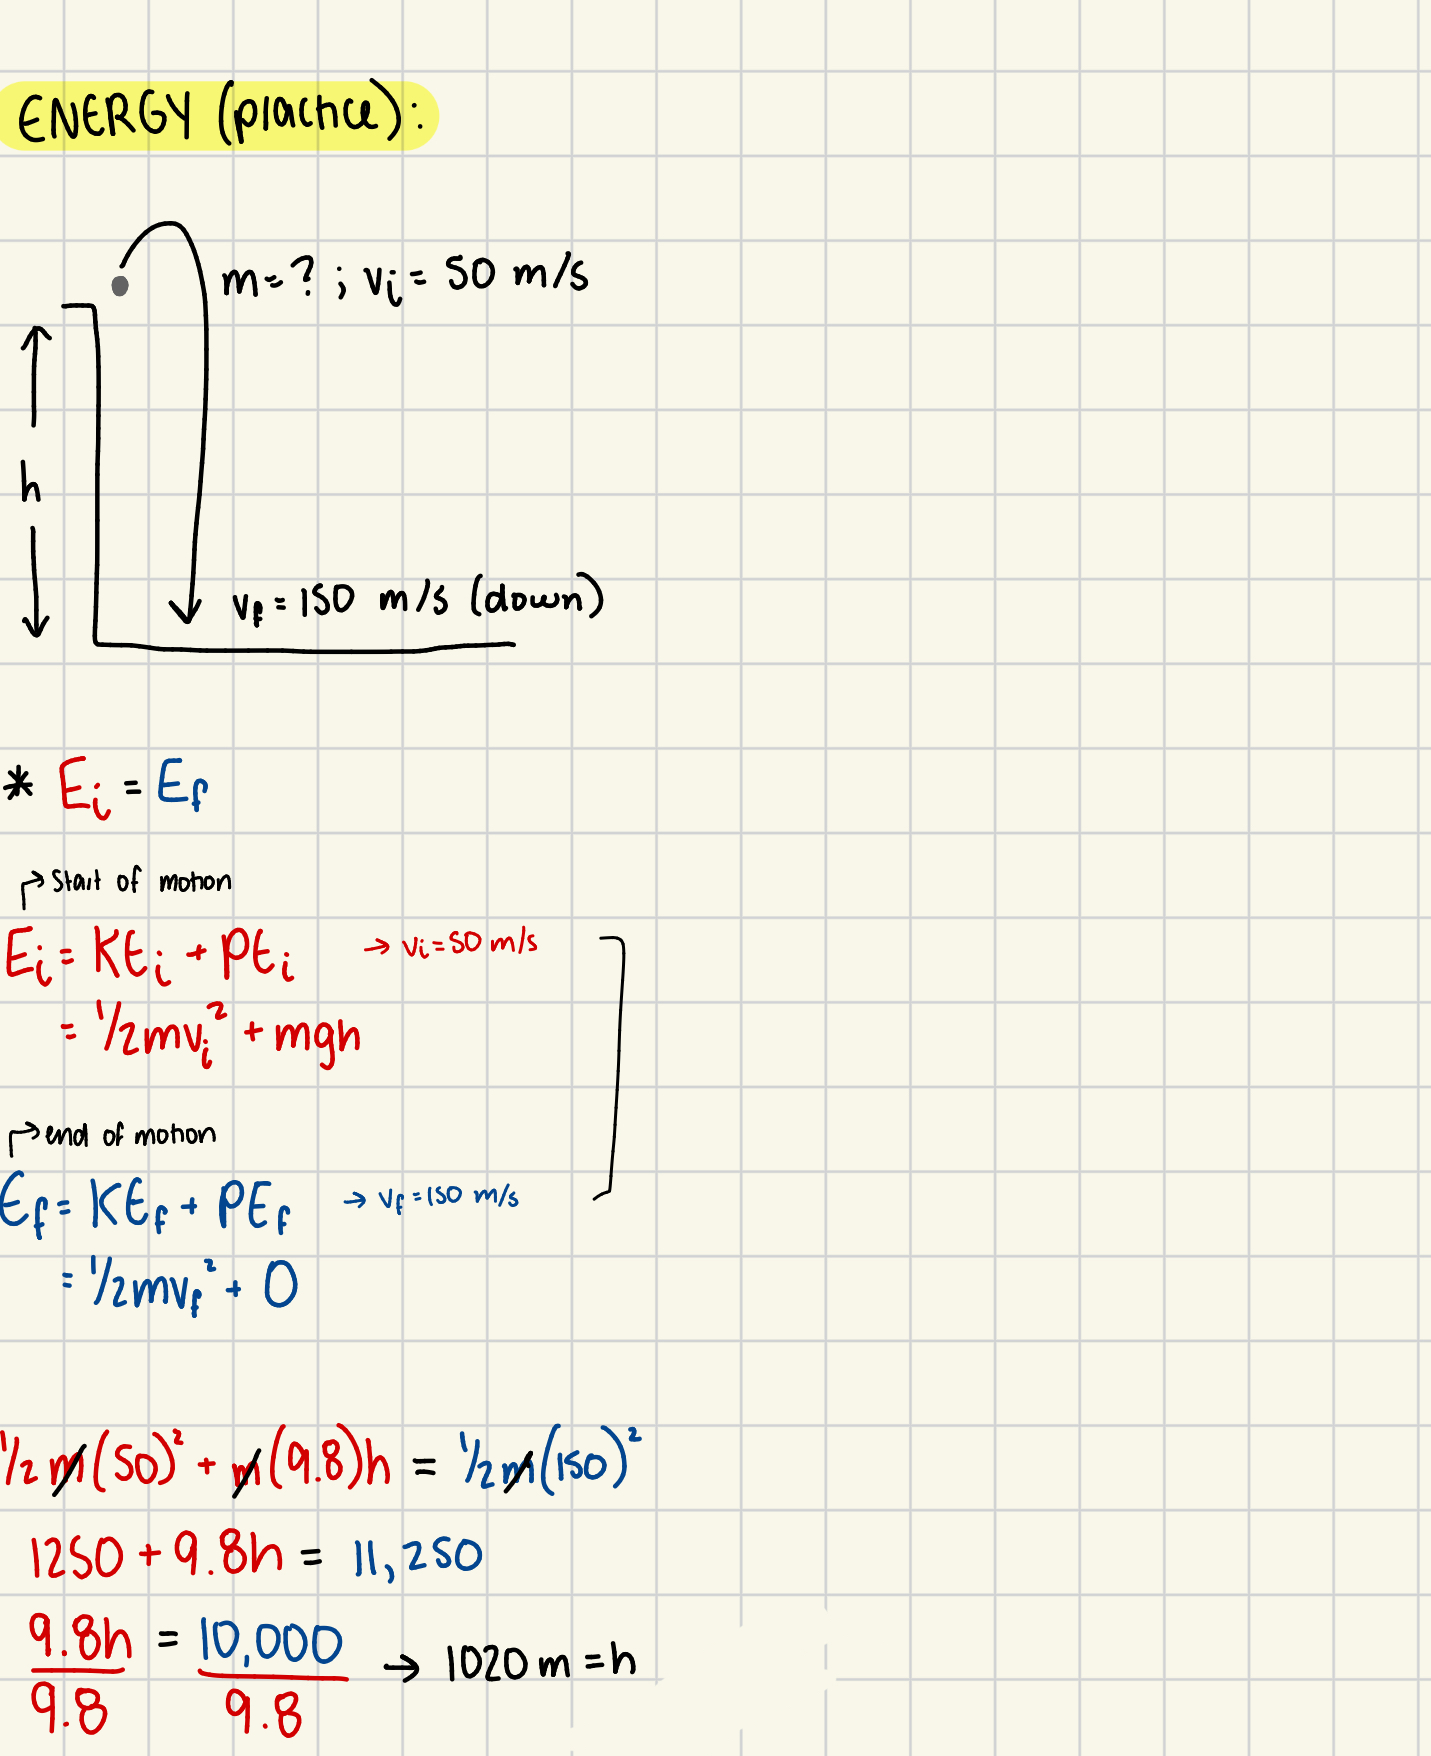 ENERGY (practice):
m=? ; vᵢ = 50 m/s
h
v_f = 150 m/s (down)
* Eᵢ = E_f
→ start of motion
Eᵢ = KEᵢ + PEᵢ → vᵢ = 50 m/s
= 1/2mvᵢ² + mgh
→ end of motion
E_f = KE_f + PE_f → v_f = 150 m/s
= 1/2mv_f² + 0
1/2 m(50)² + m(9.8)h = 1/2m(150)²
1250 + 9.8h = 11,250
9.8h = 10,000 → 1020 m = h
9.8 9.8